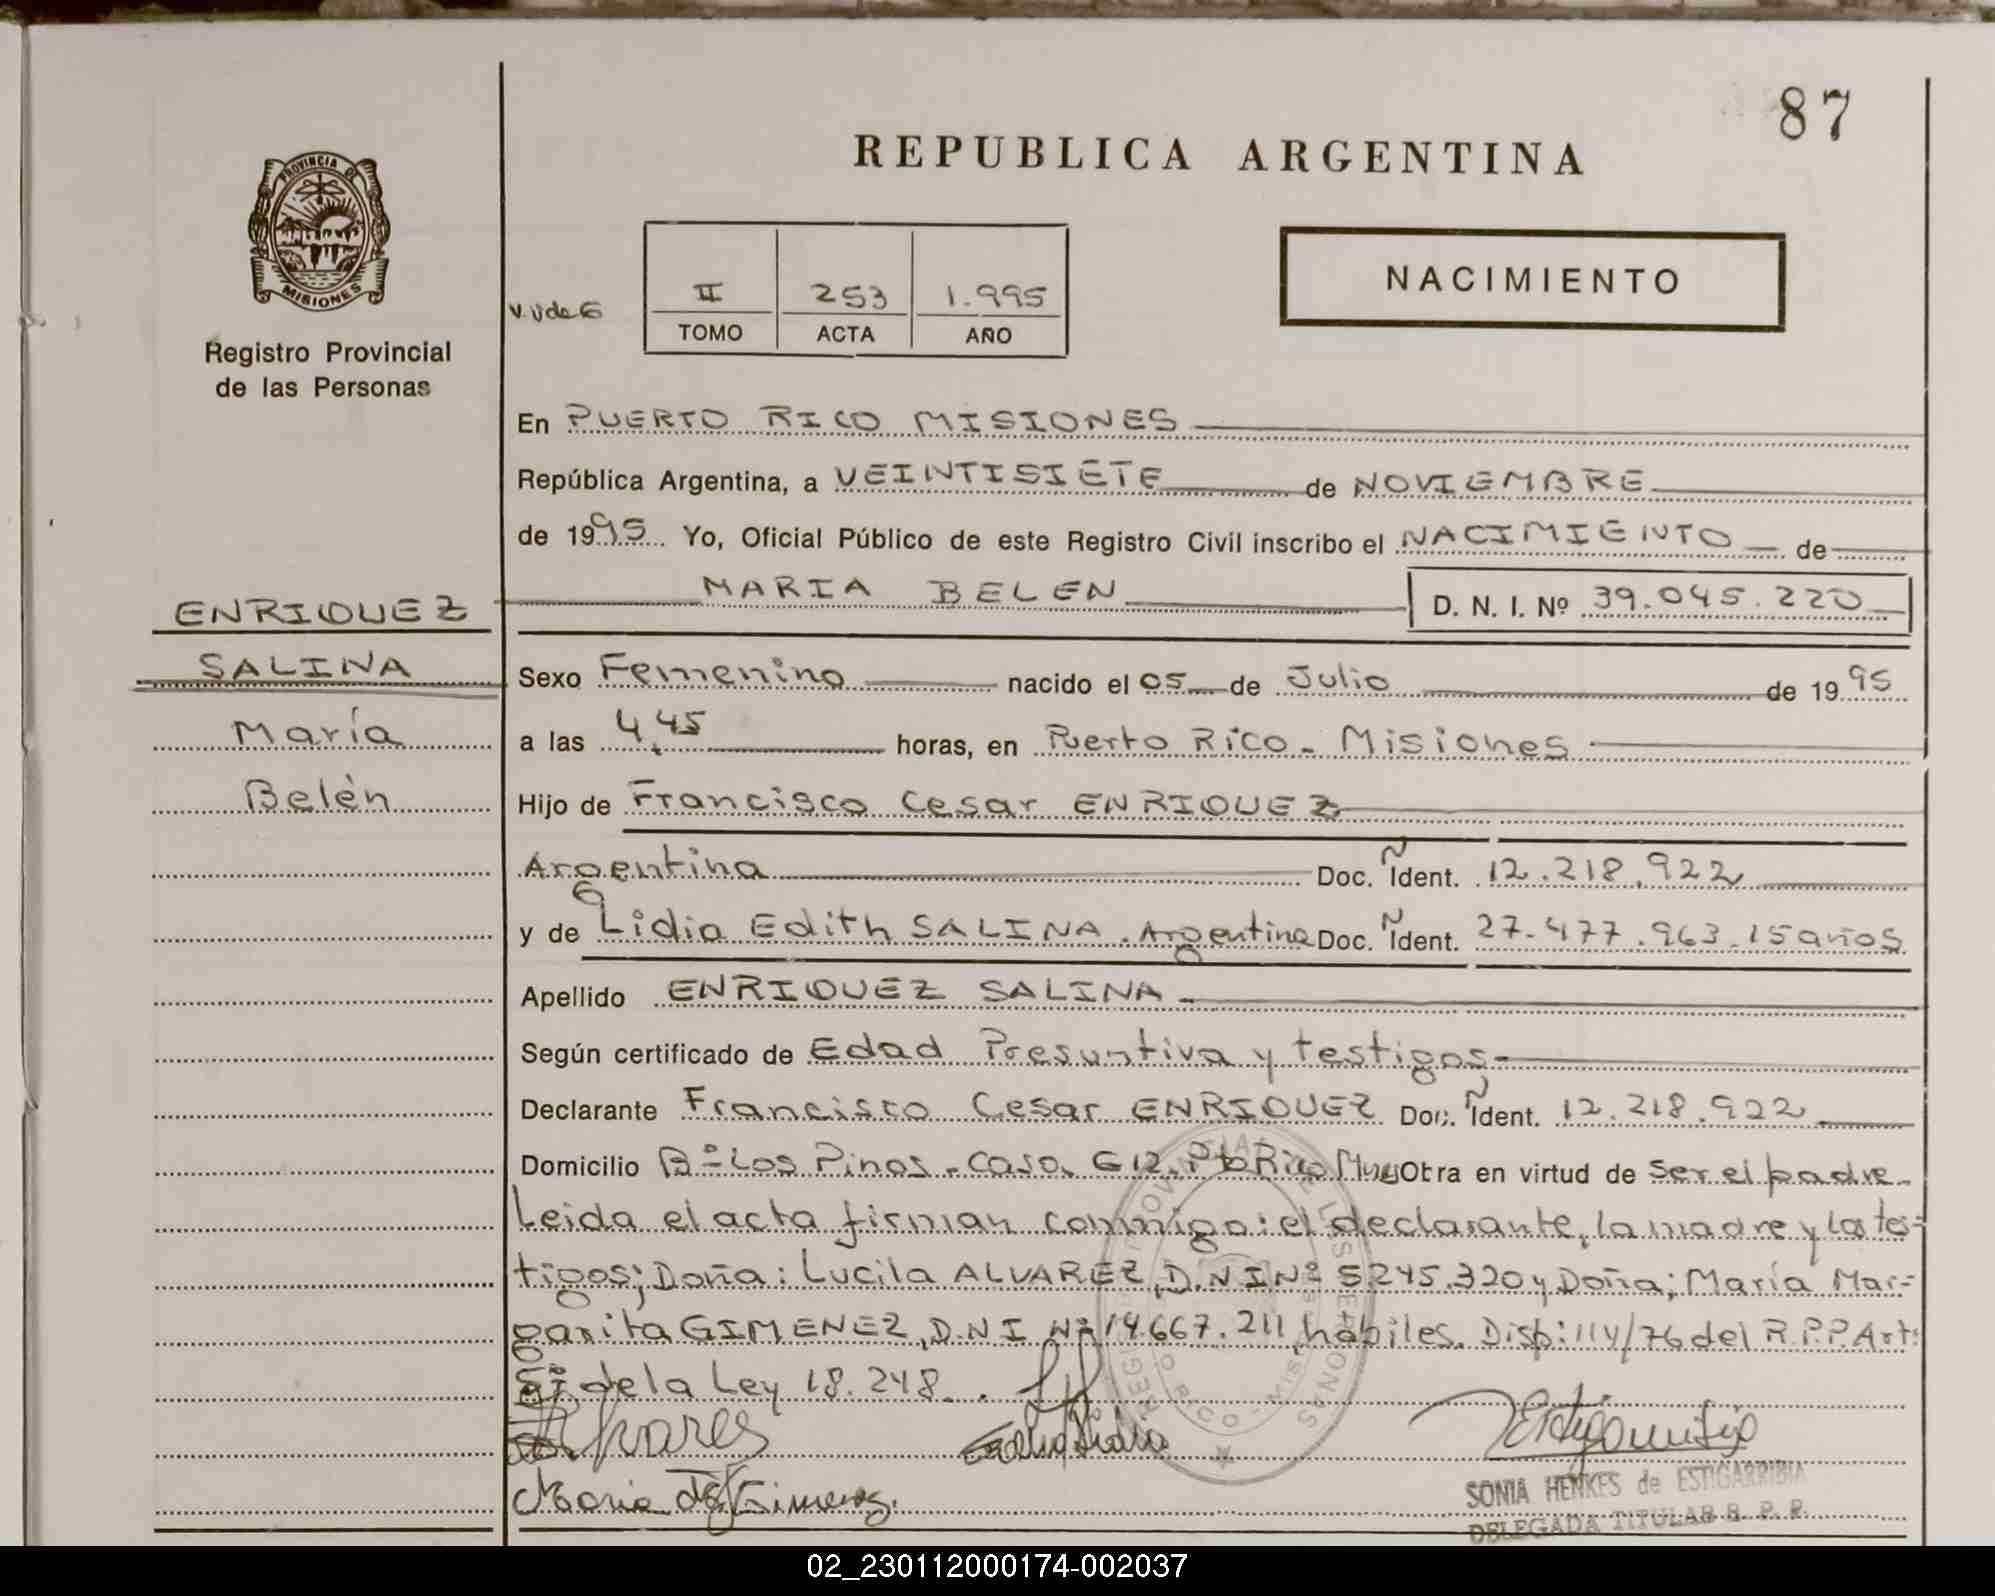 87
REPUBLICA ARGENTINA
PROVINCIA DE
MISIONES
Registro Provincial
de las Personas
II 253 1.995
TOMO ACTA AÑO
NACIMIENTO
En PUERTO RICO MISIONES
República Argentina, a VEINTISIETE de NOVIEMBRE
de 1995 Yo, Oficial Público de este Registro Civil inscribo el NACIMIENTO de
MARIA BELEN D. N. I. Nº 39.045.220
ENRIQUEZ
SALINA
María
Belén
Sexo Femenino nacido el 05 de Julio de 1995
a las 4,45 horas, en Puerto Rico - Misiones
Hijo de Francisco Cesar ENRIQUEZ
Argentina Doc. Ñ Ident. 12.218.922
y de Lidia Edith SALINA. Argentina Doc. Ñ Ident. 27.477.963. 15 años
Apellido ENRIQUEZ SALINA
Según certificado de Edad Presuntiva y testigos
Declarante Francisco Cesar ENRIQUEZ Doc. Ñ Ident. 12.218.922
Domicilio Bº Los Pinos - Casa G12. Pto Rico Mnes Obra en virtud de ser el padre.
Leida el acta firman conmigo: el declarante, la madre y los tes-
tigos; Doña: Lucila ALVAREZ, D.N.I Nº 5245.320 y Doña; María Mar-
garita GIMENEZ, D.N.I Nº 14.667.211, hábiles. Disp: 114/76 del R.P.P. Art:
5º de la Ley 18.248.
SONIA HENKES de ESTIGARRIBIA
DELEGADA TITULAR R. P. P.
02_230112000174-002037